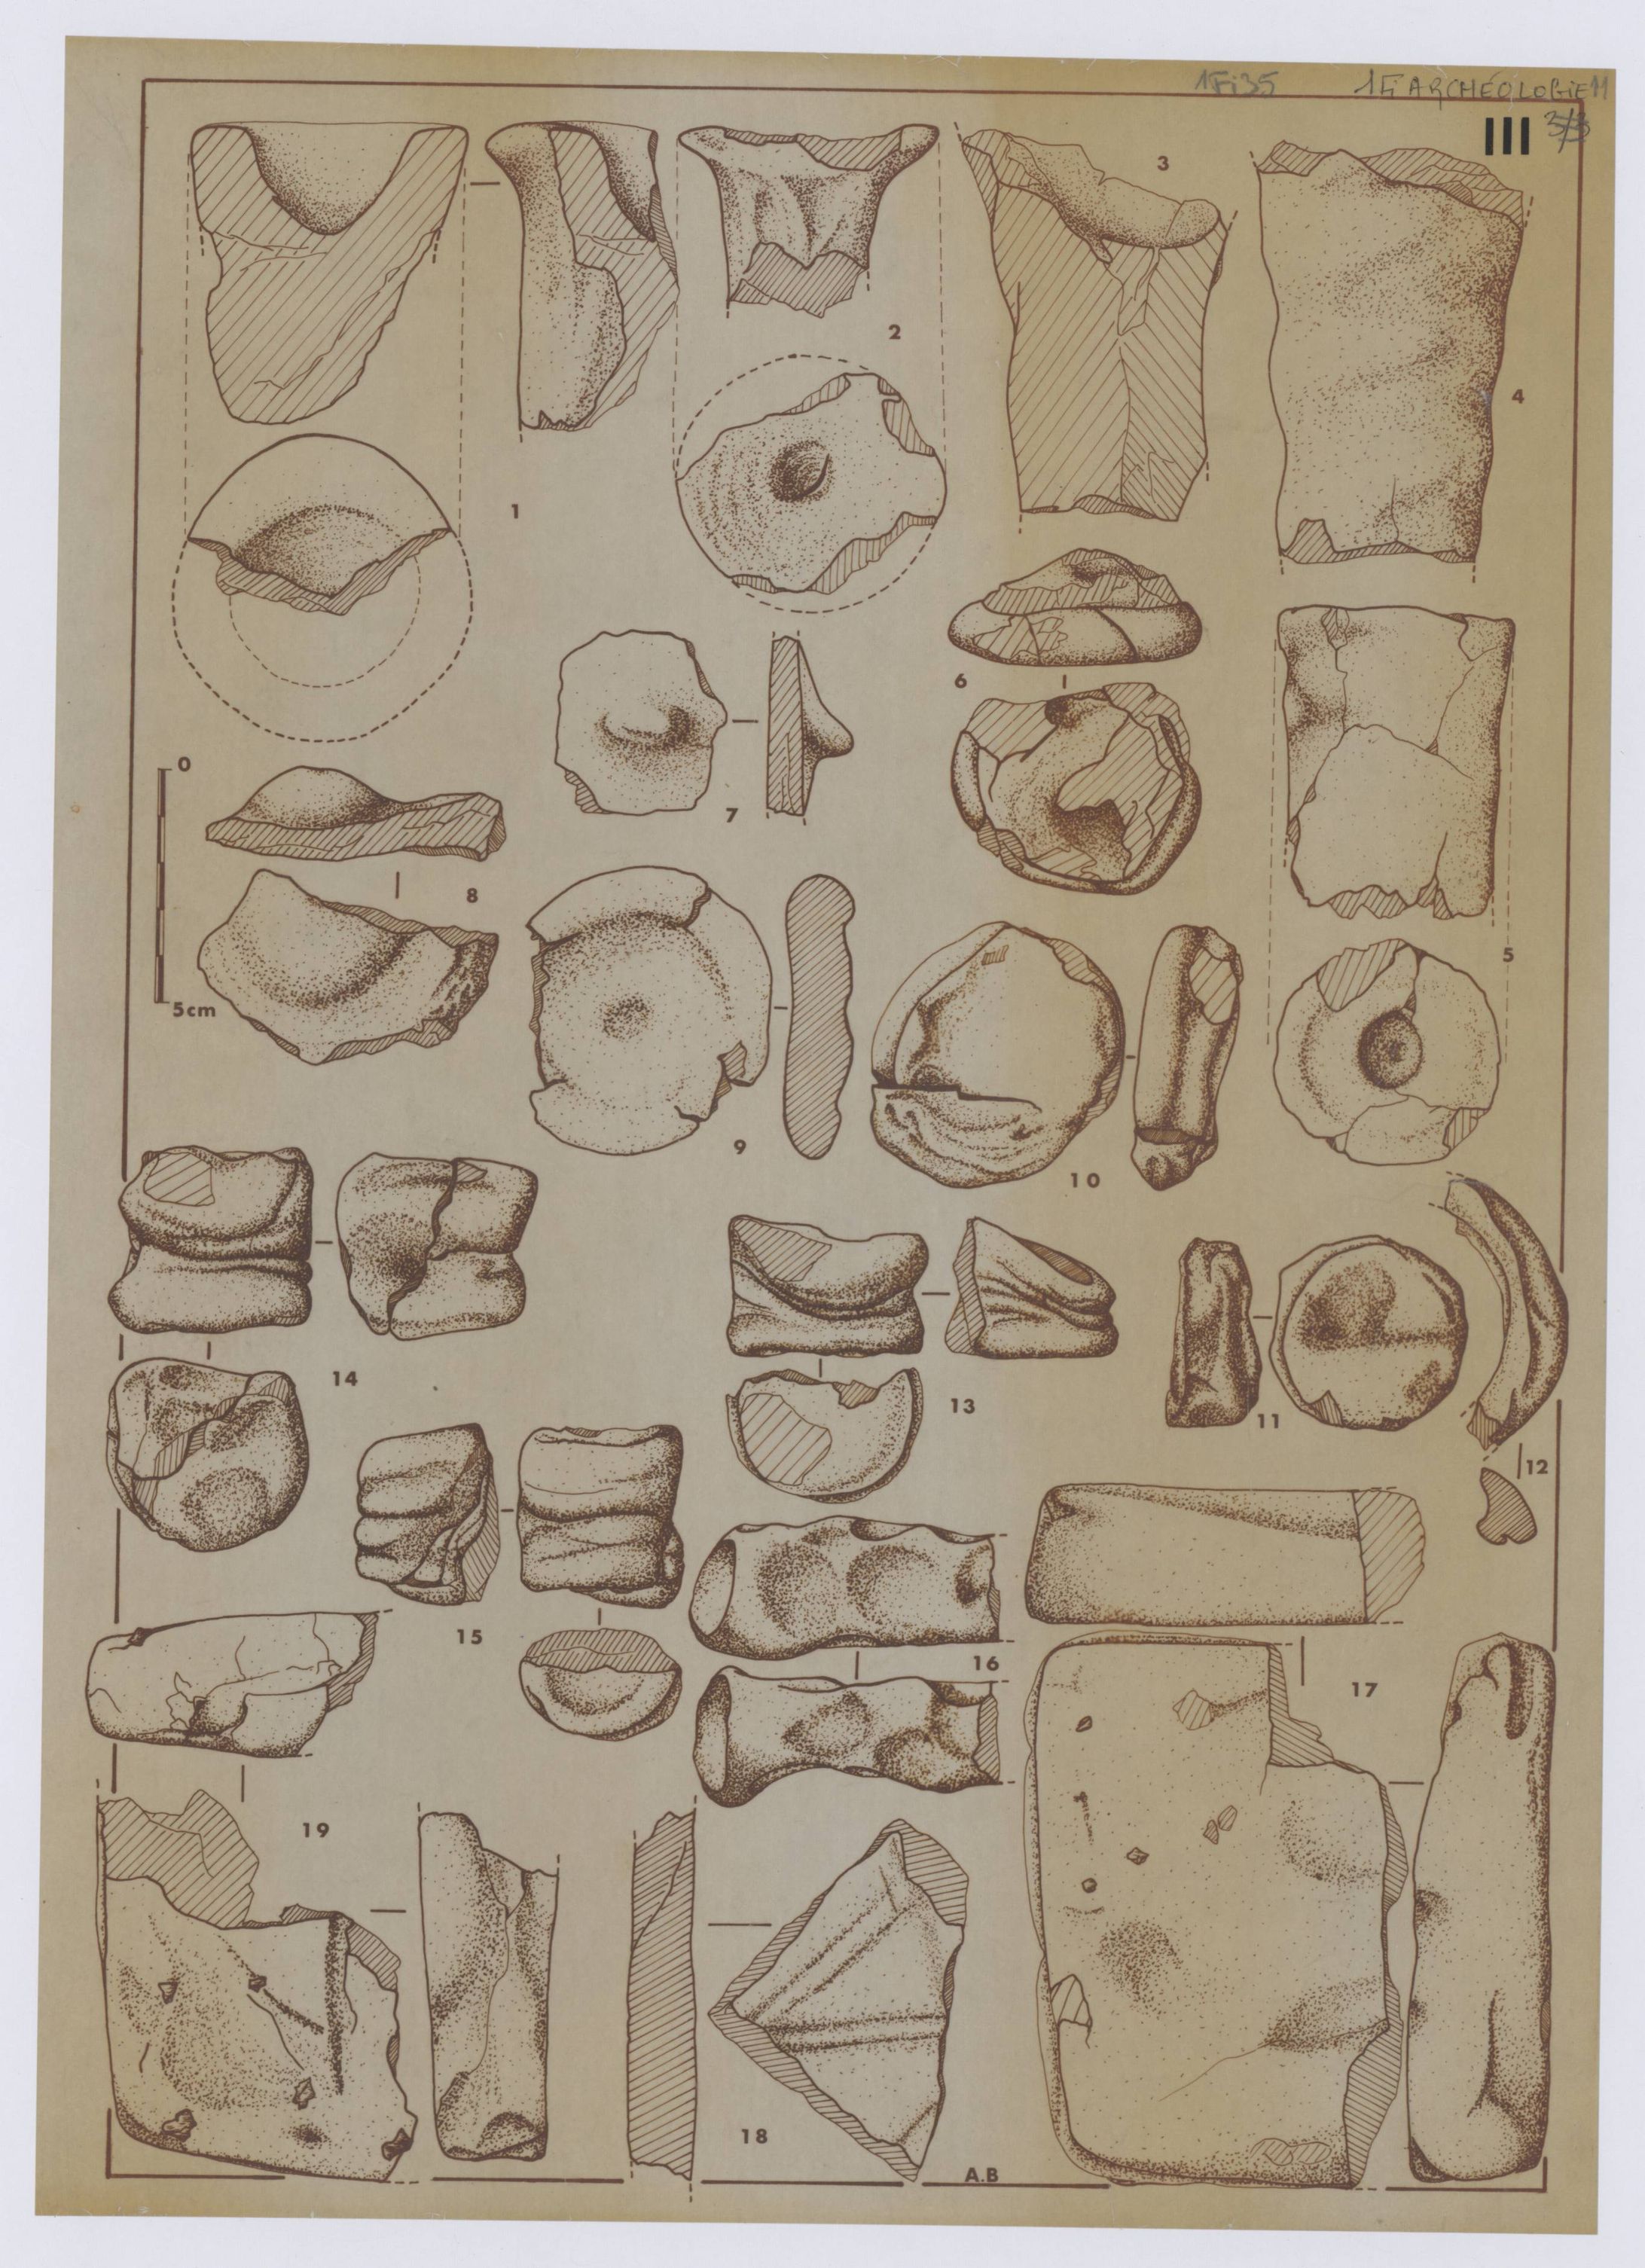 1Fi35
1Fi ARCHÉOLOGIE 11
III 3/3
3
2
4
1
6
0
7
8
5
5cm
9
10
14
13
11
12
15
16
17
19
18
A.B